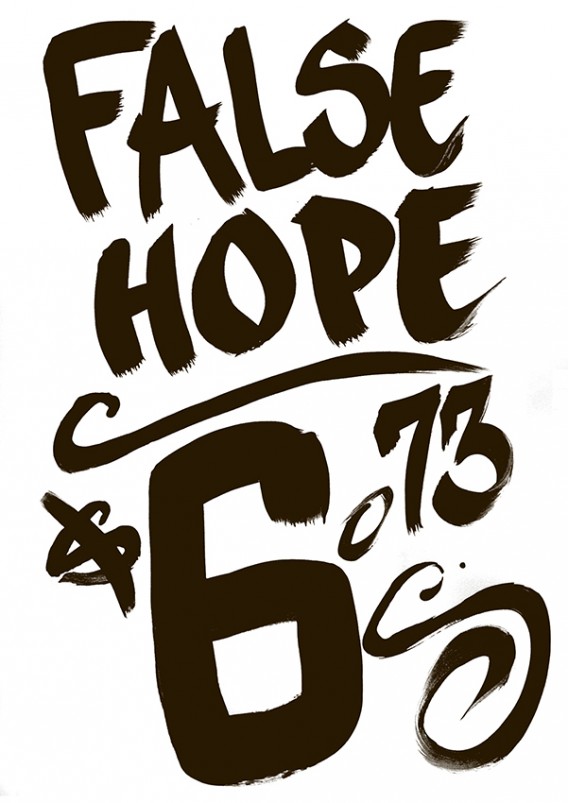 FALSE
HOPE
$6.73